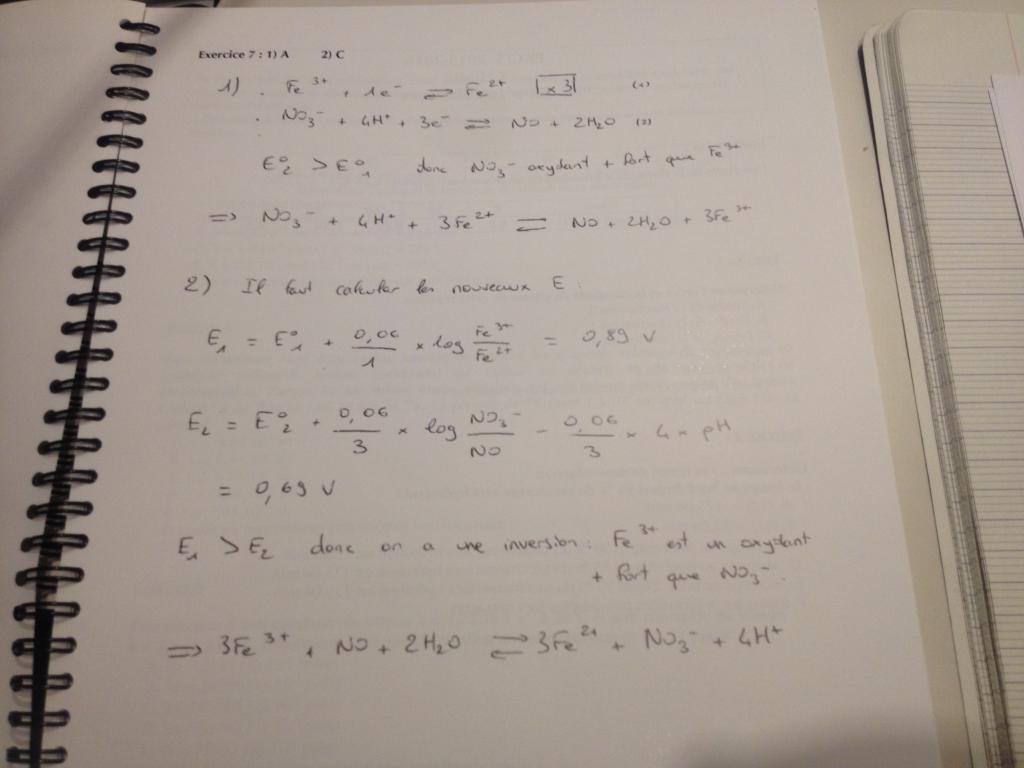 Exercice 7 : 1) A 2) C
1) . Fe³⁺ + 1e⁻ ⇌ Fe²⁺ × 3 (1)
. NO₃⁻ + 4H⁺ + 3e⁻ ⇌ NO + 2H₂O (2)
E°₂ > E°₁ donc NO₃⁻ oxydant + fort que Fe³⁺
=> NO₃⁻ + 4H⁺ + 3Fe²⁺ ⇌ NO + 2H₂O + 3Fe³⁺
2) Il faut calculer les nouveaux E :
E₁ = E°₁ + 0,06/1 × log Fe³⁺/Fe²⁺ = 0,89 V
E₂ = E°₂ + 0,06/3 × log NO₃⁻/NO - 0,06/3 × 4 × pH
= 0,69 V
E₁ > E₂ donc on a une inversion : Fe³⁺ est un oxydant
+ fort que NO₃⁻.
=> 3Fe³⁺ + NO + 2H₂O ⇌ 3Fe²⁺ + NO₃⁻ + 4H⁺